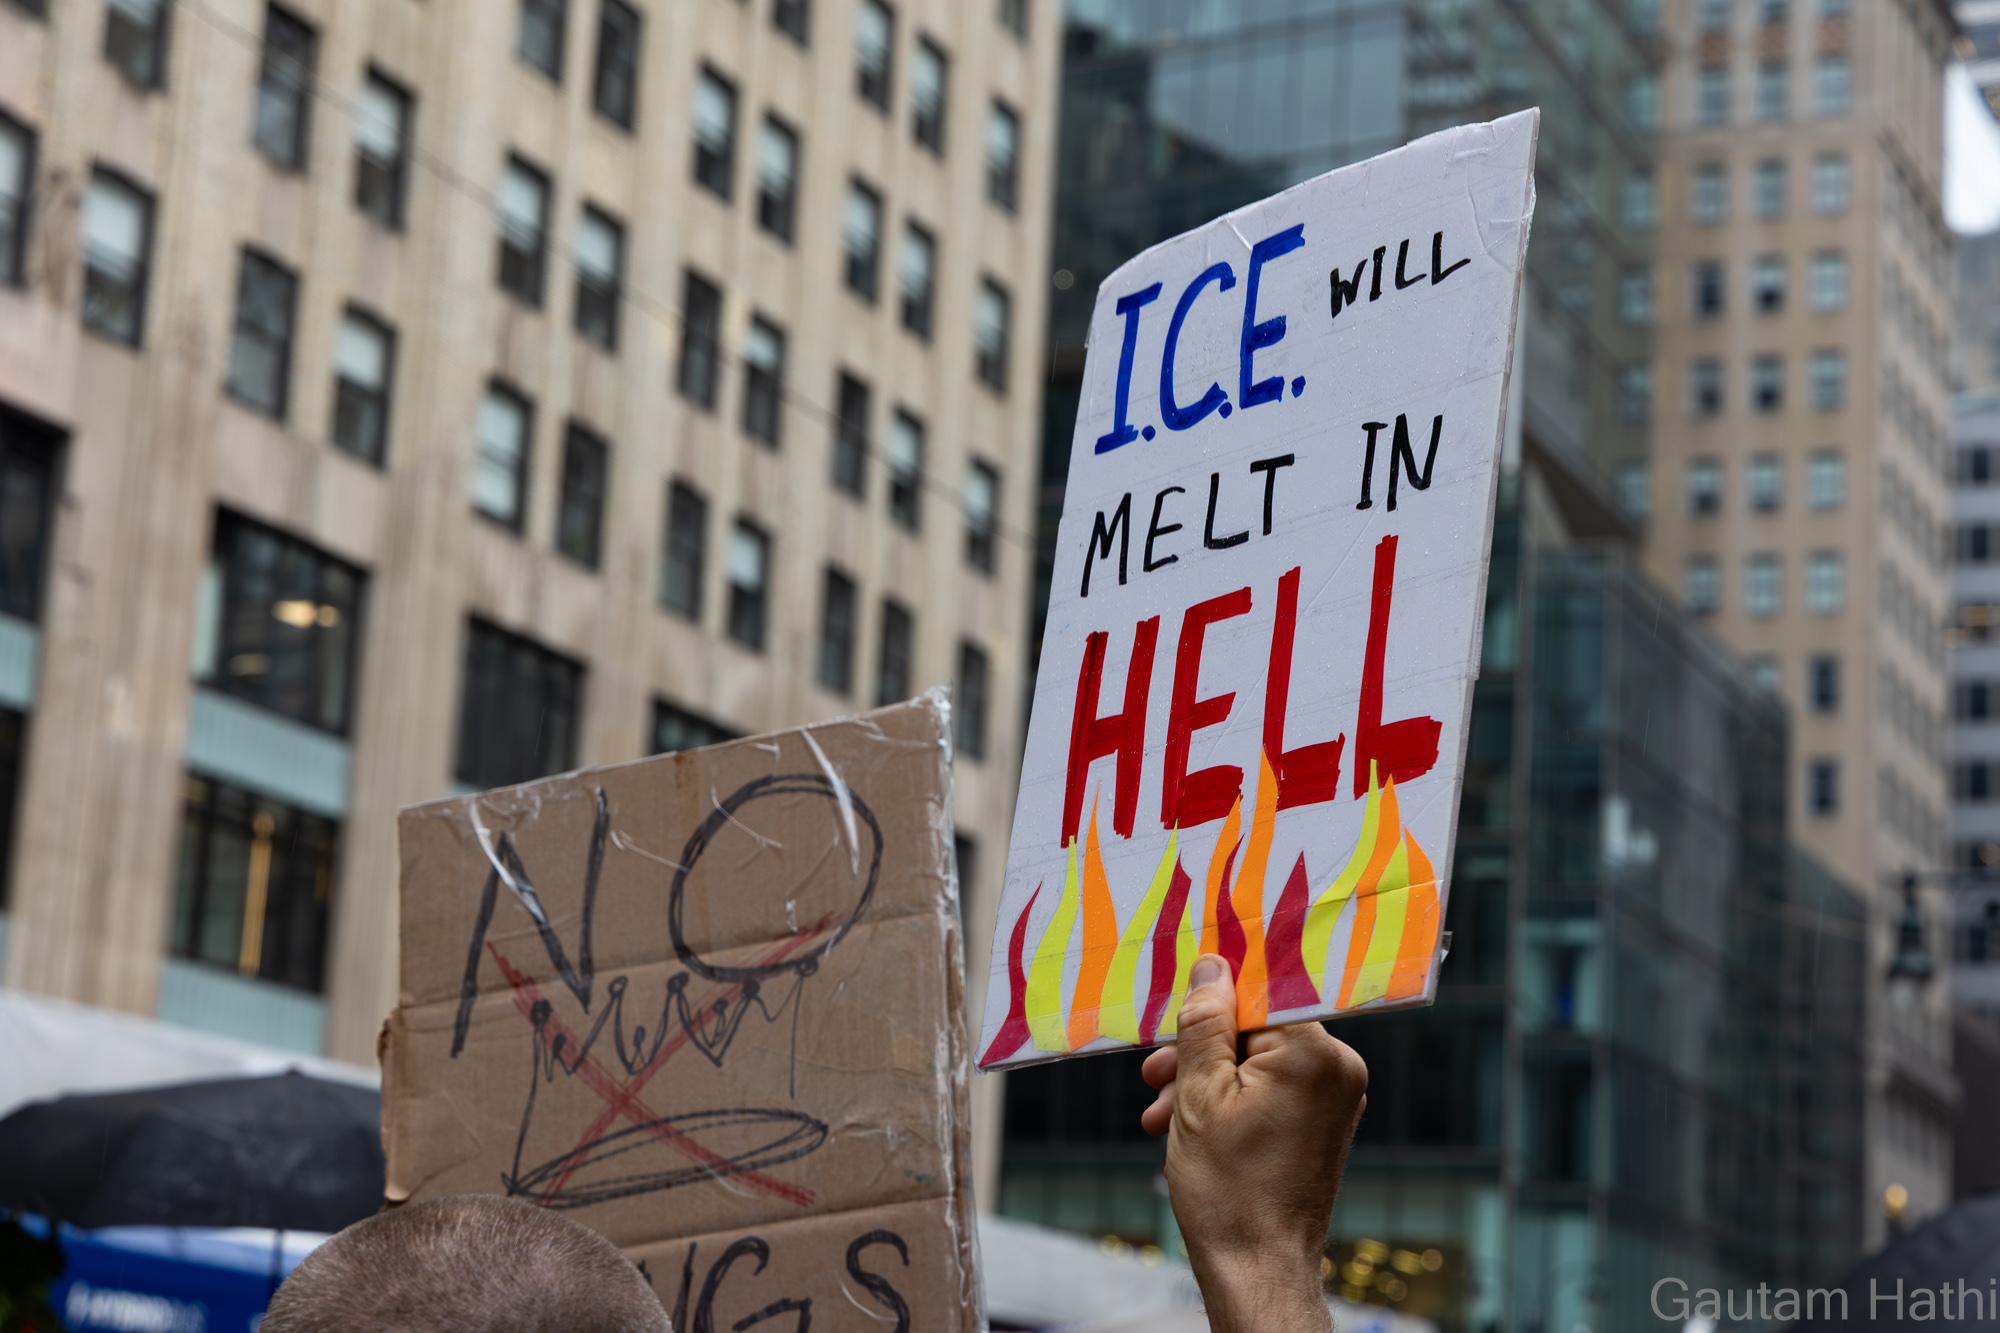 I.C.E. WILL
MELT IN
HELL
NO
NGS
Gautam Hathi